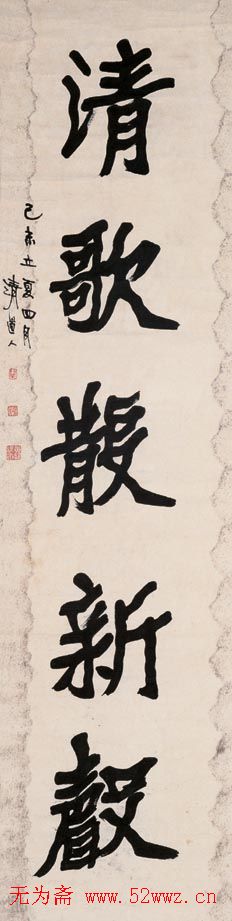 清歌散新聲
己未立夏四月
清道人
无为斋 www.52wwz.cn